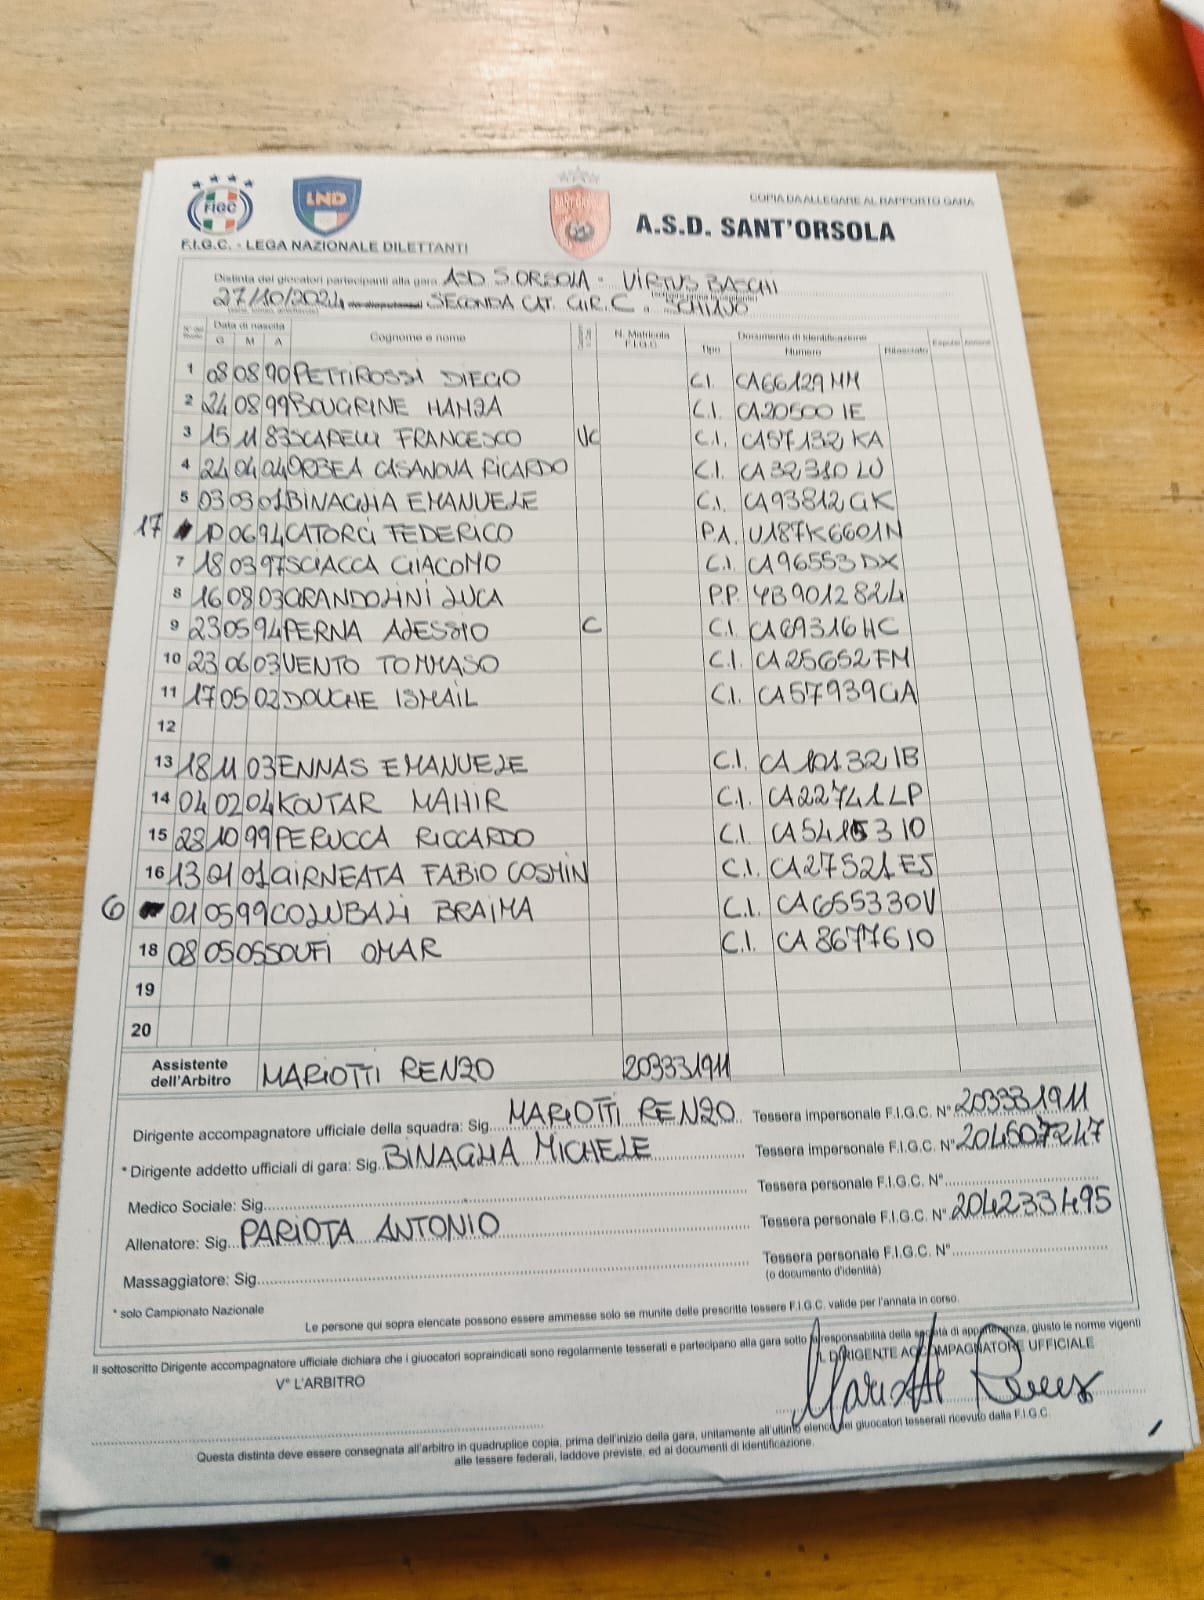 FIGC
LND
COPIA DA ALLEGARE AL RAPPORTO GARA
A.S.D. SANT'ORSOLA
F.I.G.C. - LEGA NAZIONALE DILETTANTI
Distinta dei giocatori partecipanti alla gara ASD S. ORSOLA - VIRTUS BASCHI
27/10/2024 SECONDA CAT. GIR. C a "SCHIAVO
Data di nascita Cognome e nome N. Matricola F.I.G.C. Documento di identificazione
G M A Tipo Numero Rilasciato
1 08 08 90 PETTIROSSI DIEGO C.I. CA66129MM
2 24 08 99 BOUGRINE HAMZA C.I. CA20500IE
3 15 11 83 SCAPELLI FRANCESCO VC C.I. CA57132KA
4 24 04 04 ORBEA CASANOVA RICARDO C.I. CA32310LU
5 03 03 01 BINAGHIA EMANUELE C.I. CA93812GK
17 10 06 94 CATORCI FEDERICO PA. U187K6601N
7 18 03 97 SCIACCA GIACOMO C.I. CA96553DX
8 16 08 03 GRANDOLINI LUCA P.P. YB9012824
9 23 05 94 PERNA ALESSIO C C.I. CA69316HC
10 23 06 03 VENTO TOMMASO C.I. CA25652FM
11 17 05 02 DOUCHE ISMAIL C.I. CA57939GA
12
13 18 11 03 ENNAS EMANUELE C.I. CA10132IB
14 04 02 04 KOUTAR MAHIR C.I. CA22741LP
15 28 10 99 PERUCCA RICCARDO C.I.
16 13 01 01 GIRNEATA FABIO COSMIN C.I. CA27521ES
6 01 05 99 COLUBALI BRAIMA C.I. CA65533OV
18 08 05 05 SOUFI OMAR C.I. CA86776IO
19
20
Assistente dell'Arbitro MARIOTTI RENZO 203331911
Dirigente accompagnatore ufficiale della squadra: Sig. MARIOTTI RENZO Tessera impersonale F.I.G.C. N° 203331911
* Dirigente addetto ufficiali di gara: Sig. BINAGHIA MICHELE Tessera impersonale F.I.G.C. N° 204507247
Medico Sociale: Sig. Tessera personale F.I.G.C. N°
Allenatore: Sig. PARIOTA ANTONIO Tessera personale F.I.G.C. N° 204233495
Massaggiatore: Sig. Tessera personale F.I.G.C. N°
(o documento d'identità)
* solo Campionato Nazionale
Le persone qui sopra elencate possono essere ammesse solo se munite delle prescritte tessere F.I.G.C. valide per l'annata in corso.
Il sottoscritto Dirigente accompagnatore ufficiale dichiara che i giuocatori sopraindicati sono regolarmente tesserati e partecipano alla gara sotto la responsabilità della società di appartenenza, giusto le norme vigenti
V° L'ARBITRO IL DIRIGENTE ACCOMPAGNATORE UFFICIALE
Mariotti Renzo
Questa distinta deve essere consegnata all'arbitro in quadruplice copia, prima dell'inizio della gara, unitamente all'ultimo elenco dei giuocatori tesserati ricevuto dalla F.I.G.C.
alle tessere federali, laddove previste, ed ai documenti di identificazione.